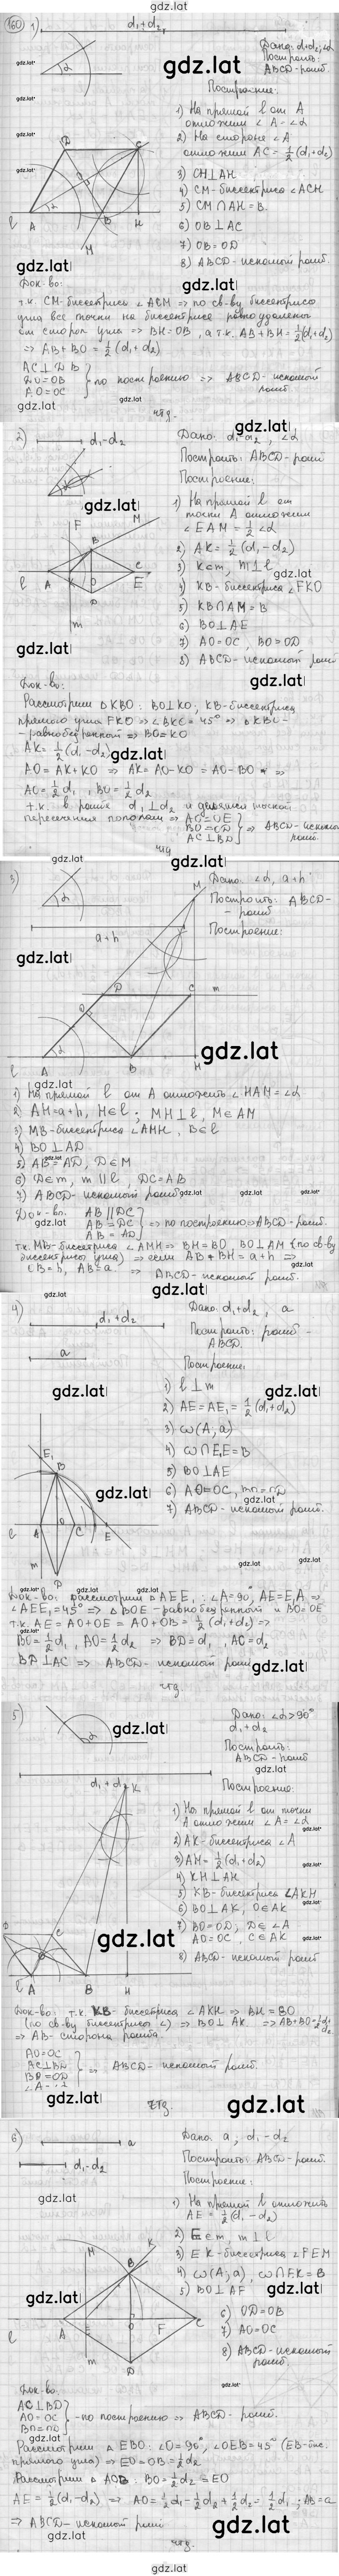 gdz.lat
160 1) d₁+d₂
Дано: d₁+d₂, ∠α
Построить:
ABCD - ромб.
Построение:
1) На прямой l от A
отложим ∠A = ∠α
2) На стороне ∠A
отложим AC = 1/2 (d₁+d₂)
3) CH⊥AH
4) CM - биссектриса ∠ACH
5) CM ∩ AH = B.
6) OB ⊥ AC
7) OB = OD
8) ABCD - искомый ромб.
Док-во:
т.к. CM - биссектриса ∠ACM ⇒ по св-ву биссектрисы
угла все точки на биссектрисе равноудалены
от сторон угла ⇒ BH = OB, а т.к. AB + BH = 1/2 (d₁+d₂)
⇒ AB + BO = 1/2 (d₁+d₂)
AC ⊥ DB
DO = OB
AO = OC } по построению ⇒ ABCD - искомый
ромб.
чтд.
2) d₁-d₂
Дано: d₁-d₂, ∠α
Построить: ABCD - ромб
Построение:
1) На прямой l от
точки A отложим
∠EAM = 1/2 ∠α
2) AK = 1/2 (d₁-d₂)
3) K∈m, m⊥l
4) KB - биссектриса ∠FKO
5) KB ∩ AM = B
6) BO ⊥ AE
7) AO = OC, BO = OD
8) ABCD - искомый ромб
Док-во:
Рассмотрим ΔKBO: BO⊥KO, KB - биссектриса
прямого угла FKO ⇒ ∠BKC = 45° ⇒ ΔKBC -
- равнобедренный ⇒ BO = KO
AK = 1/2 (d₁-d₂)
AO = AK + KO ⇒ AK = AO - KO = AO - BO ⇒
AO = 1/2 d₁, BO = 1/2 d₂
т.к. в ромбе d₁⊥d₂ и делятся точкой
пересечения пополам ⇒ AO = OE
BO = OD
AC ⊥ BD } ⇒ ABCD - искомый
ромб.
чтд
3) Дано: ∠α, a+h
Построить: ABCD -
- ромб
Построение:
a+h
1) На прямой l от A отложить ∠HAM = ∠α
2) AH = a+h, H∈l; MH⊥l, M∈AM
3) MB - биссектриса ∠AMH, B∈l
4) BO ⊥ AD
5) AB = AD, D∈M
6) D∈m, m||l, DC = AB
7) ABCD - искомый ромб
Док-во: AB || DC
AB = DC
AB = AD } ⇒ по построению ⇒ ABCD - ромб.
т.к. MB - биссектриса ∠AMH ⇒ BH = BO, BO⊥AM (по св-ву
биссектрисы угла) ⇒ если AB + BH = a+h ⇒
OB = h, AB = a ⇒ ABCD - искомый ромб.
4) d₁+d₂
a
Дано: d₁+d₂, a
Построить: ромб -
ABCD.
Построение:
1) l ⊥ m
2) AE = AE₁ = 1/2 (d₁+d₂)
3) ω(A; a)
4) ω ∩ E₁E = B
5) BO ⊥ AE
6) AO = OC, BO = OD
7) ABCD - искомый ромб.
Док-во: рассмотрим ΔAEE₁: ∠A = 90°, AE = E₁A ⇒
∠AEE₁ = 45° ⇒ ΔBOE - равнобедренный и BO = OE
т.к. AE = AO + OE = AO + OB = 1/2 (d₁+d₂) ⇒
BO = 1/2 d₁, AO = 1/2 d₂ ⇒ BD = d₁, AC = d₂
BD ⊥ AC ⇒ ABCD - искомый ромб
чтд
5) Дано: ∠α > 90°
d₁+d₂
Построить:
ABCD - ромб
d₁+d₂
Построение:
1) На прямой l от точки
A отложим ∠A = ∠α
2) AK - биссектриса ∠A
3) AH = 1/2 (d₁+d₂)
4) KH ⊥ AH
5) KB - биссектриса ∠AKH
6) BO ⊥ AK, O∈AK
7) BO = OD, D∈∠A
AO = OC, C∈AK
8) ABCD - искомый ромб
Док-во: т.к. KB - биссектриса ∠AKH ⇒ BH = BO
(по св-ву биссектрисы ∠) ⇒ BO ⊥ AK ⇒ AB + BO = 1/2 d₁+d₂
⇒ AB - сторона ромба.
AO = OC
AC ⊥ BD
BO = OD } ⇒ ABCD - искомый ромб.
чтд.
6) a
d₁-d₂
Дано: a, d₁-d₂
Построить: ABCD - ромб.
Построение:
1) На прямой l отложить
AE = 1/2 (d₁-d₂)
2) E∈m, m⊥l
3) EK - биссектриса ∠FEM
4) ω(A; a), ω ∩ EK = B
5) BO ⊥ AF
6) OD = OB
7) AO = OC
8) ABCD - искомый
ромб.
Док-во:
AC ⊥ BD
AO = OC
BO = OD } - по построению ⇒ ABCD - ромб.
Рассмотрим ΔEBO: ∠O = 90°, ∠OEB = 45° (EB - бис.
прямого угла) ⇒ EO = OB = 1/2 d₂
Рассмотрим ΔAOB: BO = 1/2 d₂ = EO
AE = 1/2 (d₁-d₂) ⇒ AO = 1/2 d₁ - 1/2 d₂ + 1/2 d₂ = 1/2 d₁; AB = a
⇒ ABCD - искомый ромб
чтд.
gdz.lat